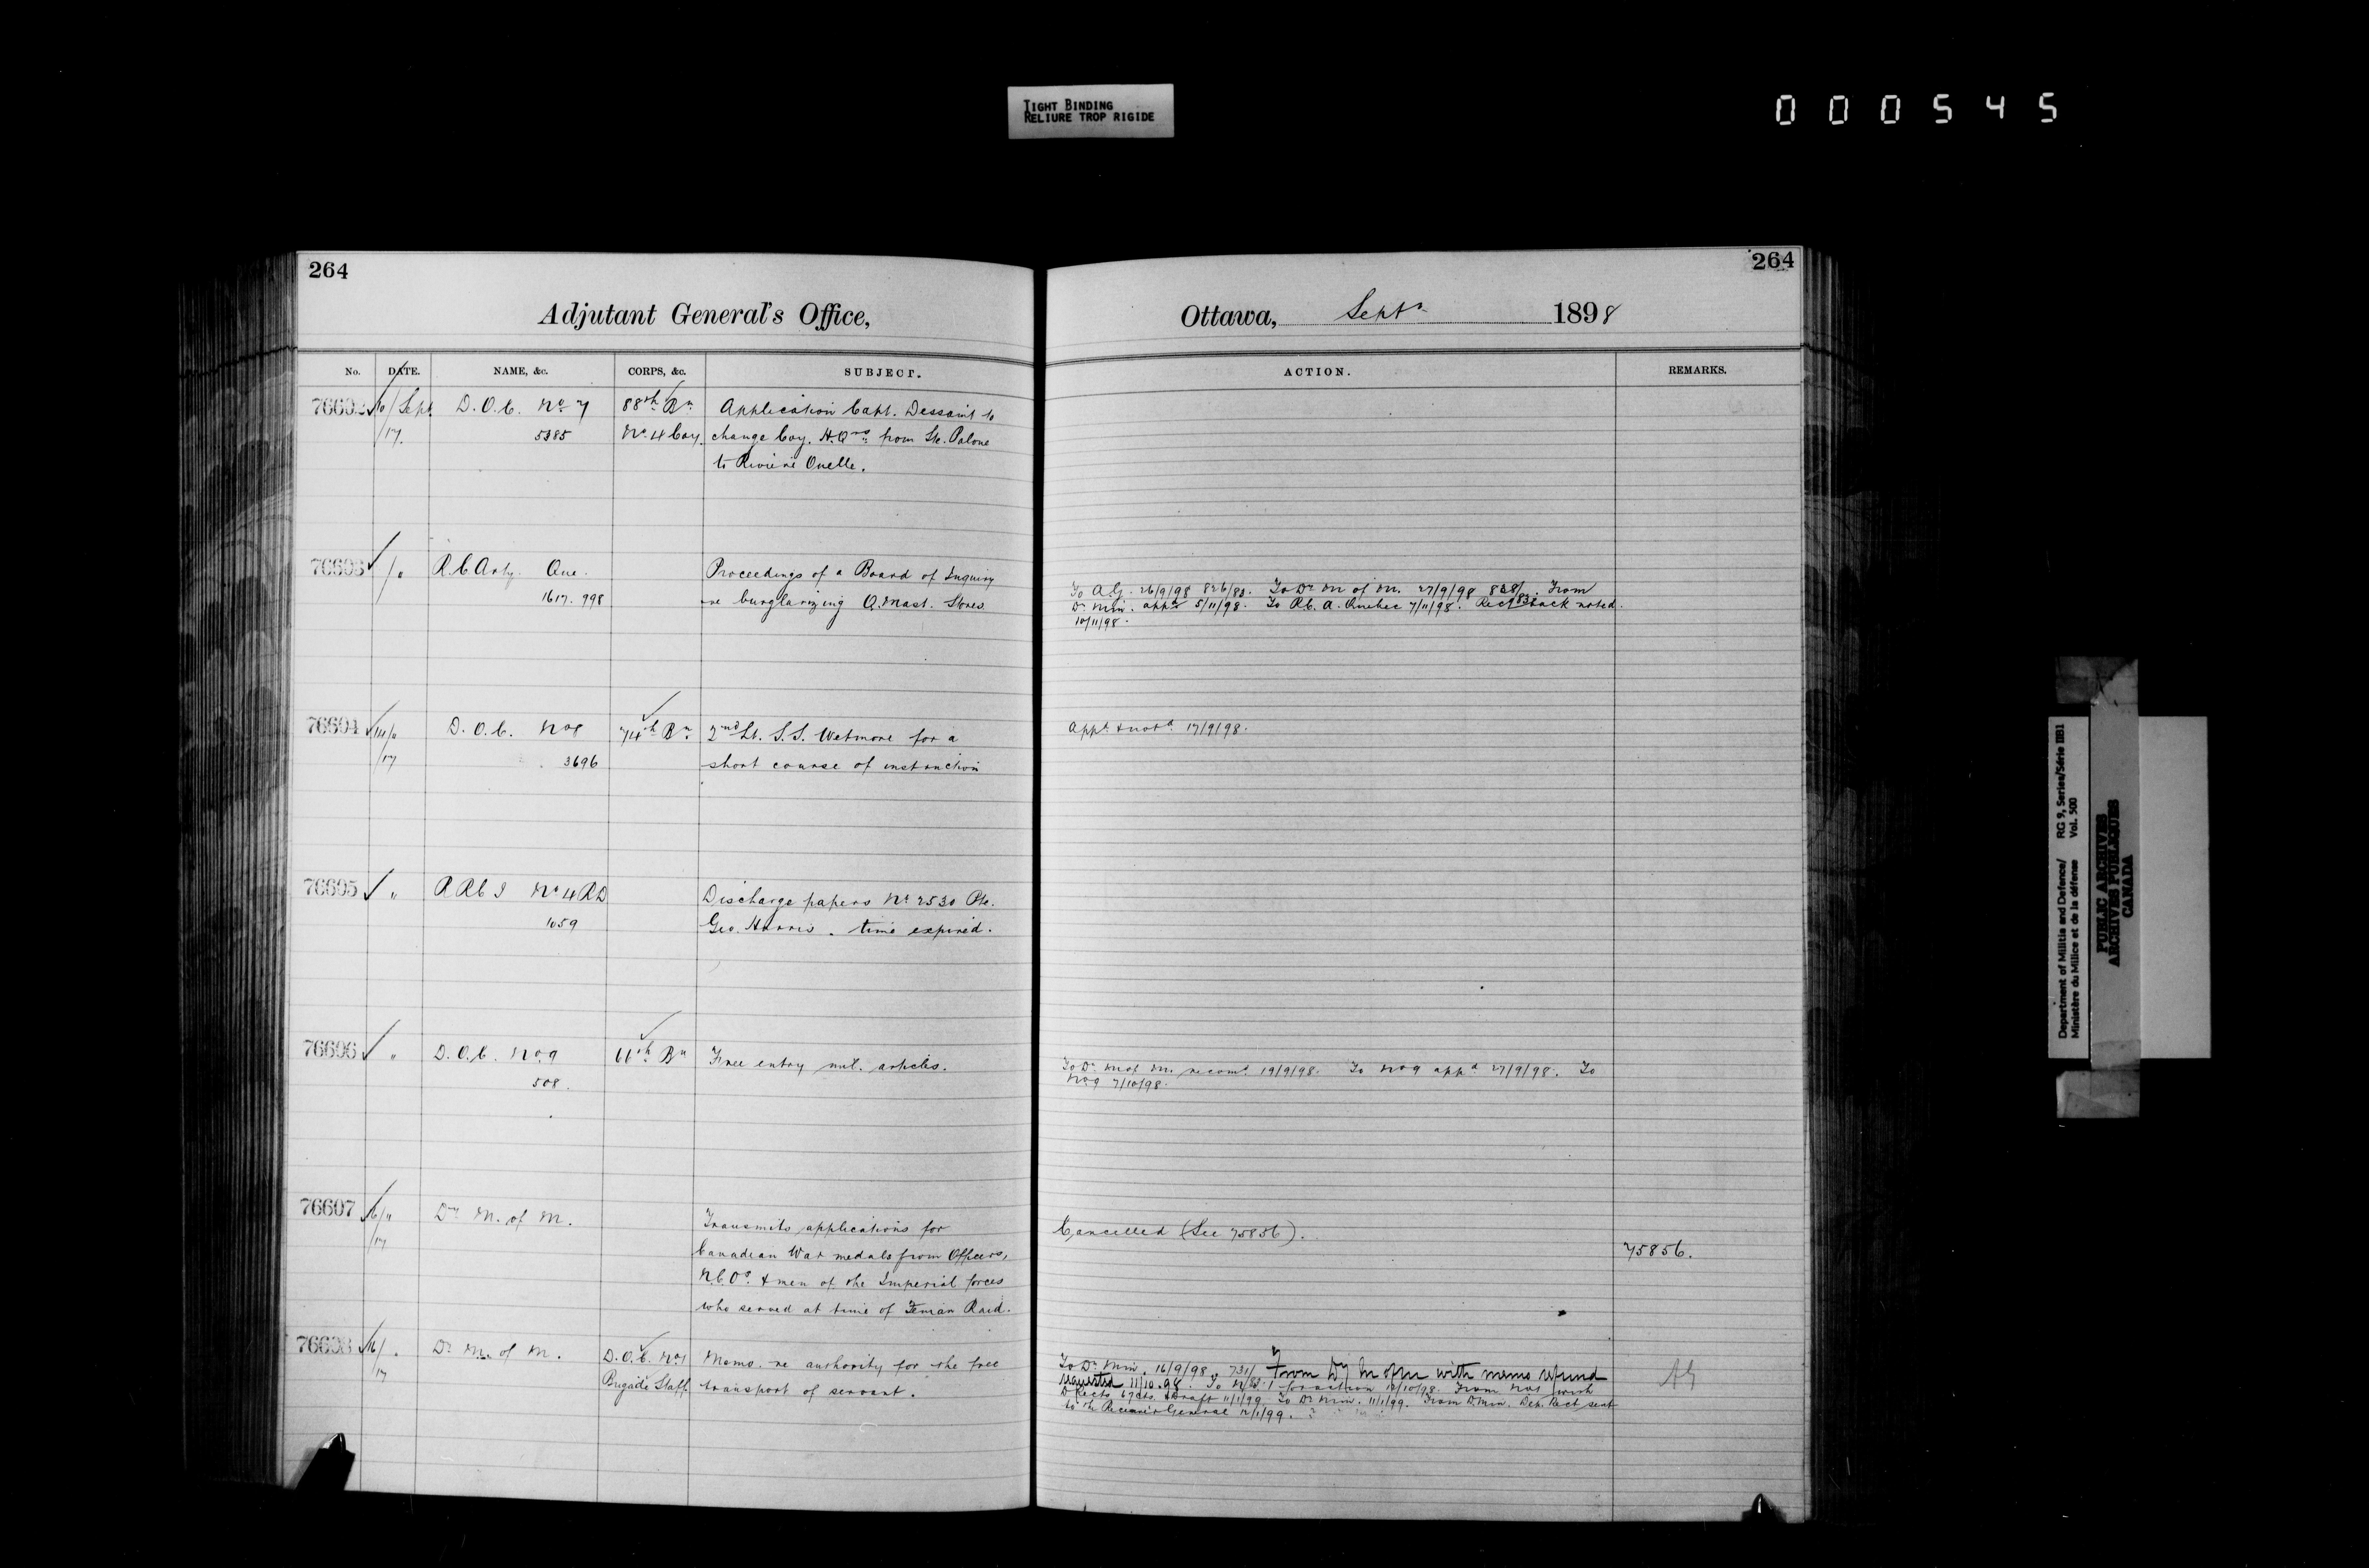 TIGHT BINDING
RELIURE TROP RIGIDE
000545
264
264
Adjutant General's Office,
Ottawa, Sept. 1898
No. DATE. NAME, &c. CORPS, &c. SUBJECT.
ACTION. REMARKS.
76602 10/Sept. D.O.C. No 7 88th Bn Application Capt. Dessaint to
/17. 5385 No. 4 Coy. change Coy. H.Qrs from Ste.
to Rivière Ouelle.
76603 /" R.C. Arty. Que. Proceedings of a Board of Inquiry
1617. 998 re burglarizing Q. Mast. Stores
To A.G. 26/9/98 826/83. To Dr M of M. 27/9/98 838/83. From
Dr Min. appd 5/11/98. To R.C.A. Quebec 7/11/98. Recd back noted
10/11/98.
76604 14/" D.O.C. No 8 74th Bn 2nd Lt. S.S. Wetmore for a
/17 3696 short course of instruction
Appd & notd 17/9/98.
76605 " R R C I No 4 RD Discharge papers No 2530 Pte.
1059 Geo. Harris. time expired.
76606 " D.O.C. No 9 Bn Free entry mil. articles.
508.
To Dr M of M. recomd 19/9/98. To No 9 appd 27/9/98. To
No 9 7/10/98.
76607 16/" Dr M. of M.
/17 Transmits applications for
Canadian War medals from Officers,
N.C.Os. & men of the Imperial forces
who served at time of Fenian Raid.
Cancelled (See 75856).
75856.
76608 16/" Dr M. of M. D.O.C. No 1 Memo. re authority for the free
/17 Brigade Staff transport of servant.
To Dr Min. 16/9/98 731/ From Dy M of M with memo refund
requested 11/10.98. To No 1 for action 12/10/98. From No 1 with
D Rects 67 cts. & Draft 11/1/99. To Dr Min. 11/1/99. From D. Min. Dep. Rect sent
to the Receiver General 12/1/99.
AG
Department of Militia and Defence/ RG 9, Series/Série IIB1
Ministère du Milice et de la défense Vol. 500
PUBLIC ARCHIVES
ARCHIVES PUBLIQUES
CANADA